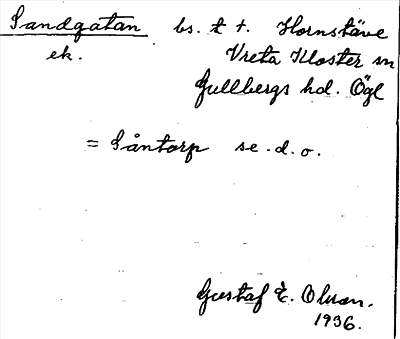 Sandgatan bs. t t. Hornstäve
ek. Vreta Kloster sn
Gullbergs hd. Ögl
= Såntorp se. d. o.
Gustaf E. Olson.
1936.